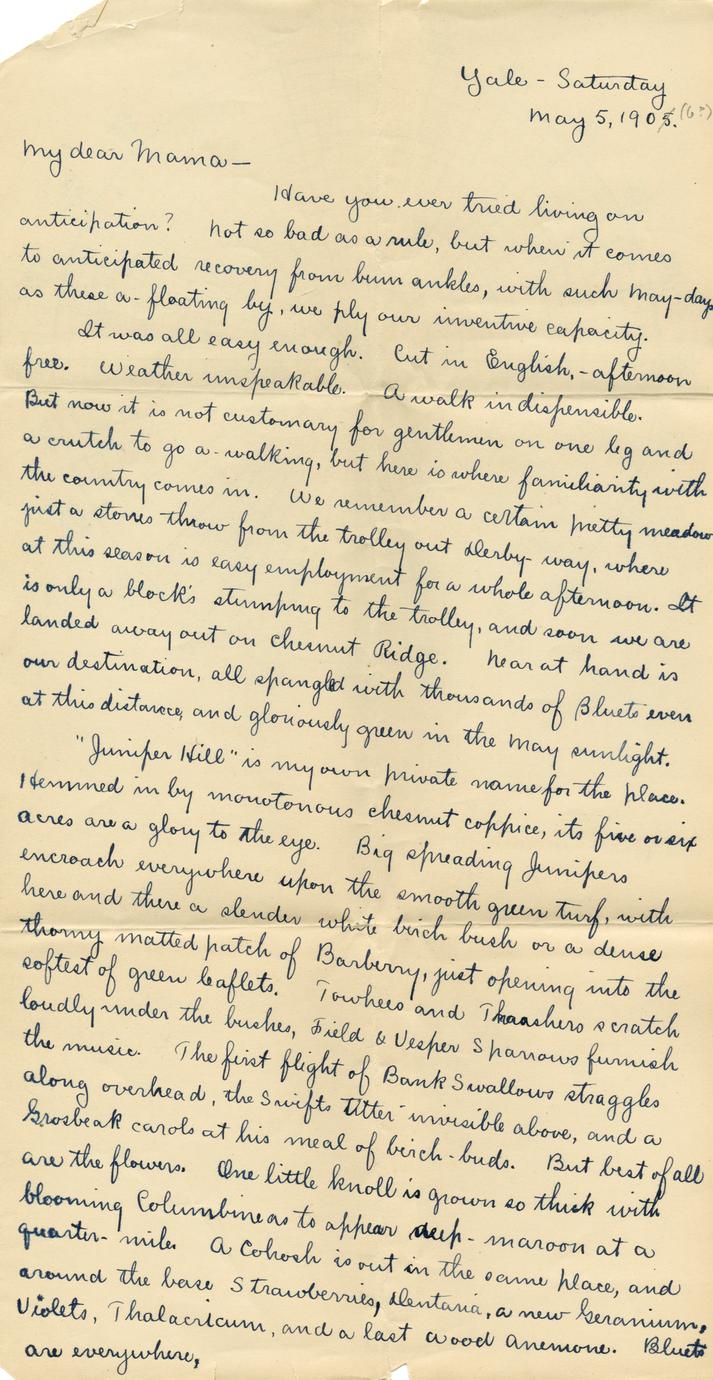 Yale - Saturday
May 5, 1905. (6?)
My dear Mama —
Have you ever tried living on
anticipation? Not so bad as a rule, but when it comes
to anticipated recovery from bum ankles, with such May-days
as these a-floating by, we ply our inventive capacity.
It was all easy enough. Cut in English, - afternoon
free. Weather unspeakable. A walk indispensible.
But now it is not customary for gentlemen on one leg and
a crutch to go a-walking, but here is where familiarity with
the country comes in. We remember a certain pretty meadow
just a stones throw from the trolley out Derby-way, where
at this season is easy employment for a whole afternoon. It
is only a block's stumping to the trolley, and soon we are
landed away out on Chesnut Ridge. Near at hand is
our destination, all spangled with thousands of Bluets even
at this distance, and gloriously green in the May sunlight.
"Juniper Hill" is my own private name for the place.
Hemmed in by monotonous chesnut coppice, its five or six
acres are a glory to the eye. Big spreading Junipers
encroach everywhere upon the smooth green turf, with
here and there a slender white birch bush or a dense
thorny matted patch of Barberry, just opening into the
softest of green leaflets. Towhees and Thrashers scratch
loudly under the bushes, Field & Vesper Sparrows furnish
the music. The first flight of Bank Swallows straggles
along overhead, the Swifts titter invisible above, and a
Grosbeak carols at his meal of birch-buds. But best of all
are the flowers. One little knoll is grown so thick with
blooming Columbine as to appear deep-maroon at a
quarter-mile. A Cohosh is out in the same place, and
around the base Strawberries, Dentaria, a new Geranium,
Violets, Thalacricum, and a last wood anemone. Bluets
are everywhere,